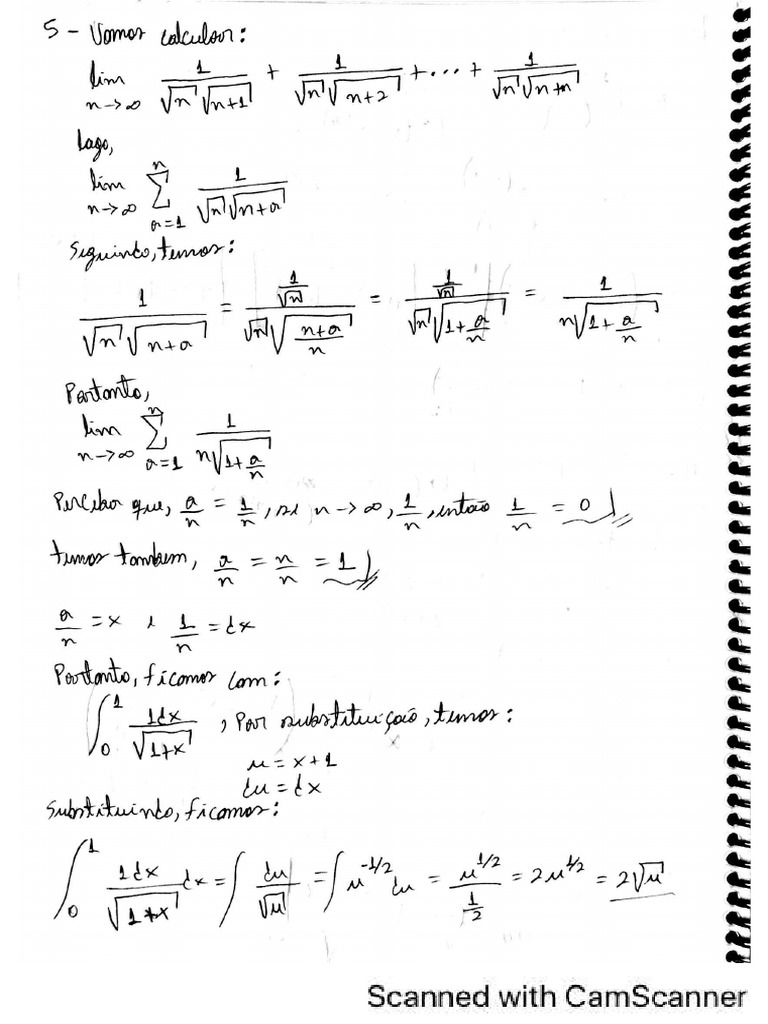 5 - Vamos calcular:
lim n→∞ 1/(√n √(n+1)) + 1/(√n √(n+2)) + ... + 1/(√n √(n+n))
Logo,
lim n→∞ Σ_{a=1}^{n} 1/(√n √(n+a))
Seguindo, temos:
1/(√n √(n+a)) = (1/√n)/(√n √((n+a)/n)) = (1/√n)/(√n √(1+a/n)) = 1/(n√(1+a/n))
Portanto,
lim n→∞ Σ_{a=1}^{n} 1/(n√(1+a/n))
Perceba que, a/n = 1/n, se n→∞, 1/n, então 1/n = 0
temos também, a/n = n/n = 1
a/n = x e 1/n = dx
Portanto, ficamos com:
∫_0^1 1dx/√(1+x), Por substituição, temos:
u = x+1
du = dx
Substituindo, ficamos:
∫_0^1 1dx/√(1+x) dx = ∫ du/√u = ∫ u^{-1/2} du = u^{1/2}/(1/2) = 2u^{1/2} = 2√u
Scanned with CamScanner